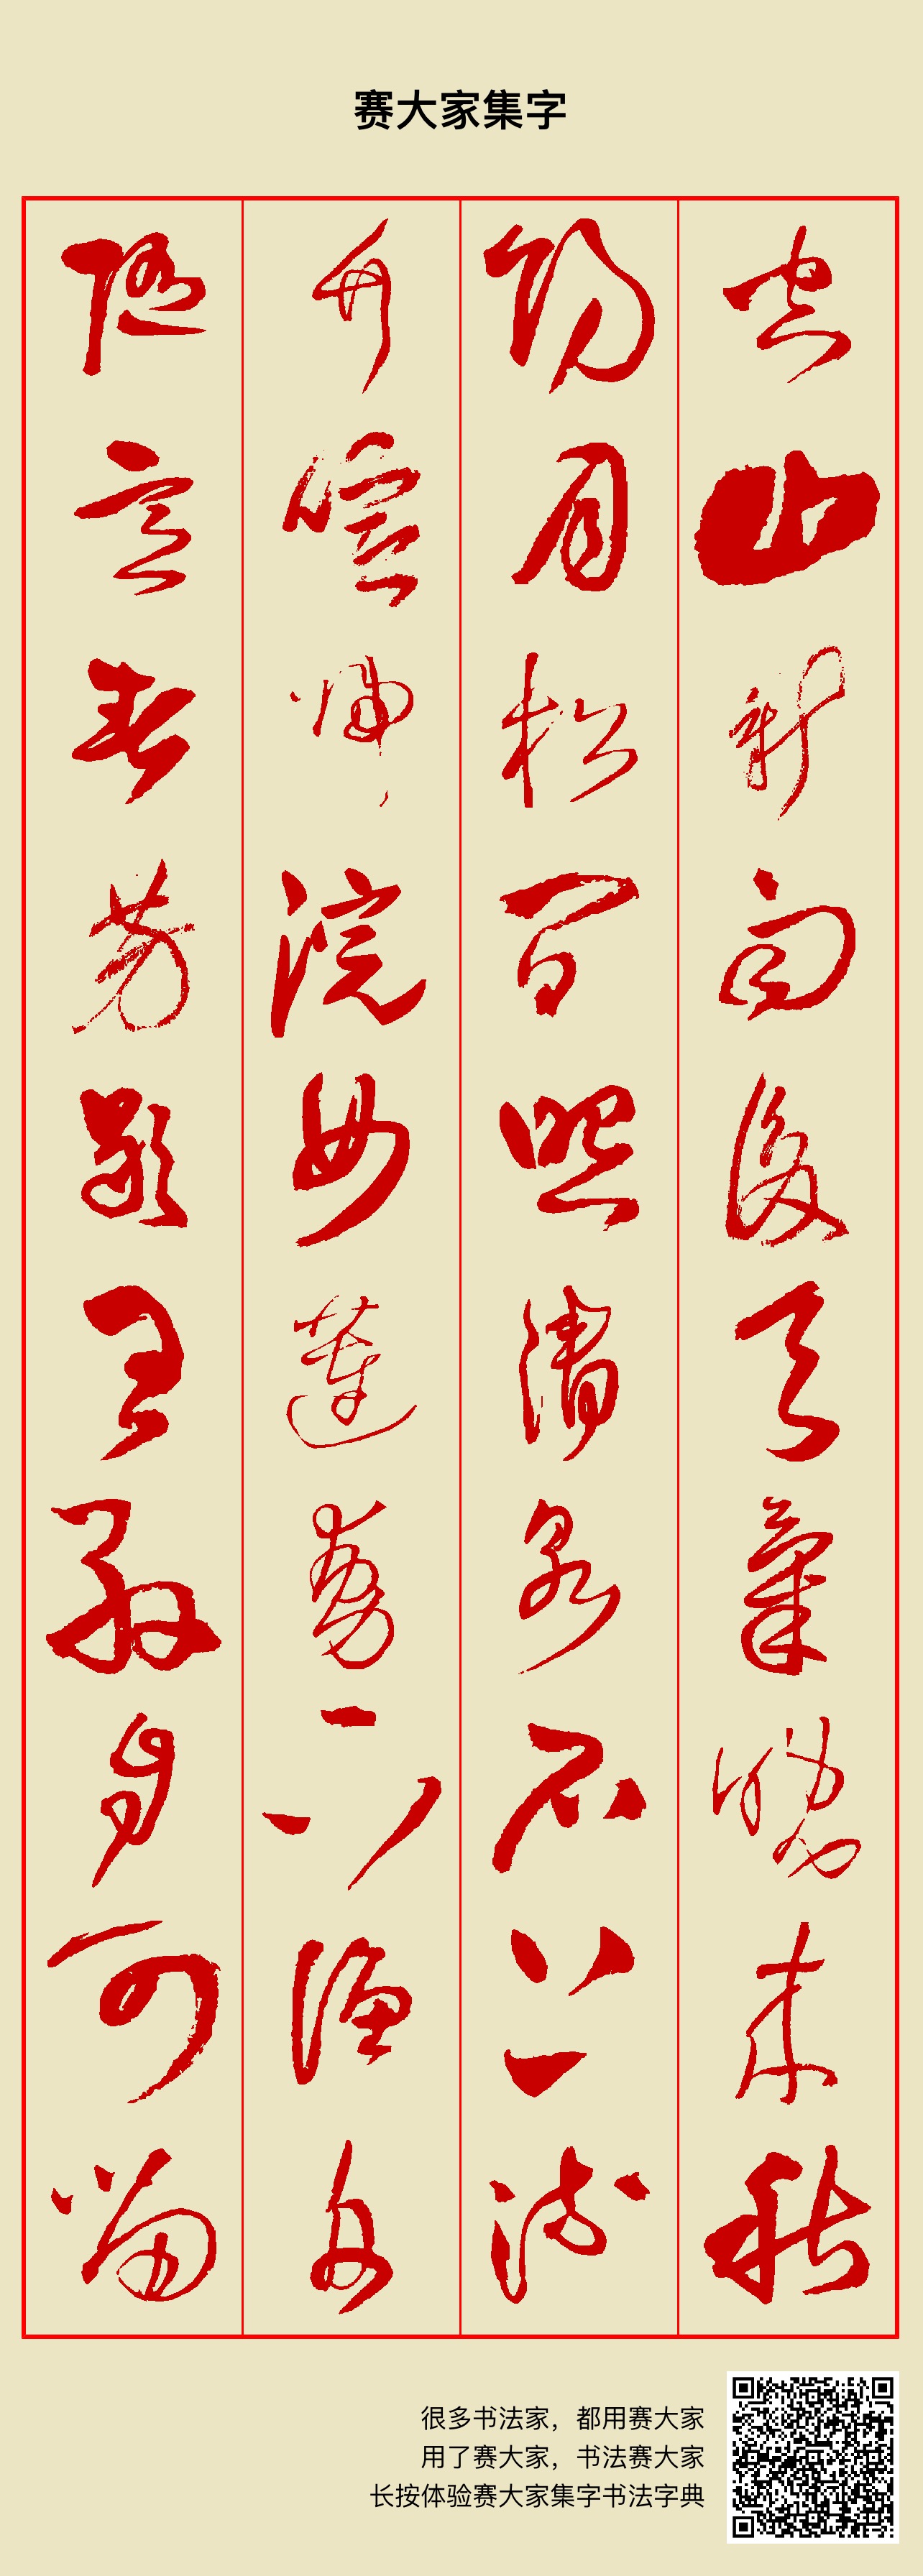 赛大家集字
空山新雨後天氣晚來秋
明月松間照清泉石上流
竹喧歸浣女蓮動下漁舟
隨意春芳歇王孫自可留
很多书法家，都用赛大家
用了赛大家，书法赛大家
长按体验赛大家集字书法字典